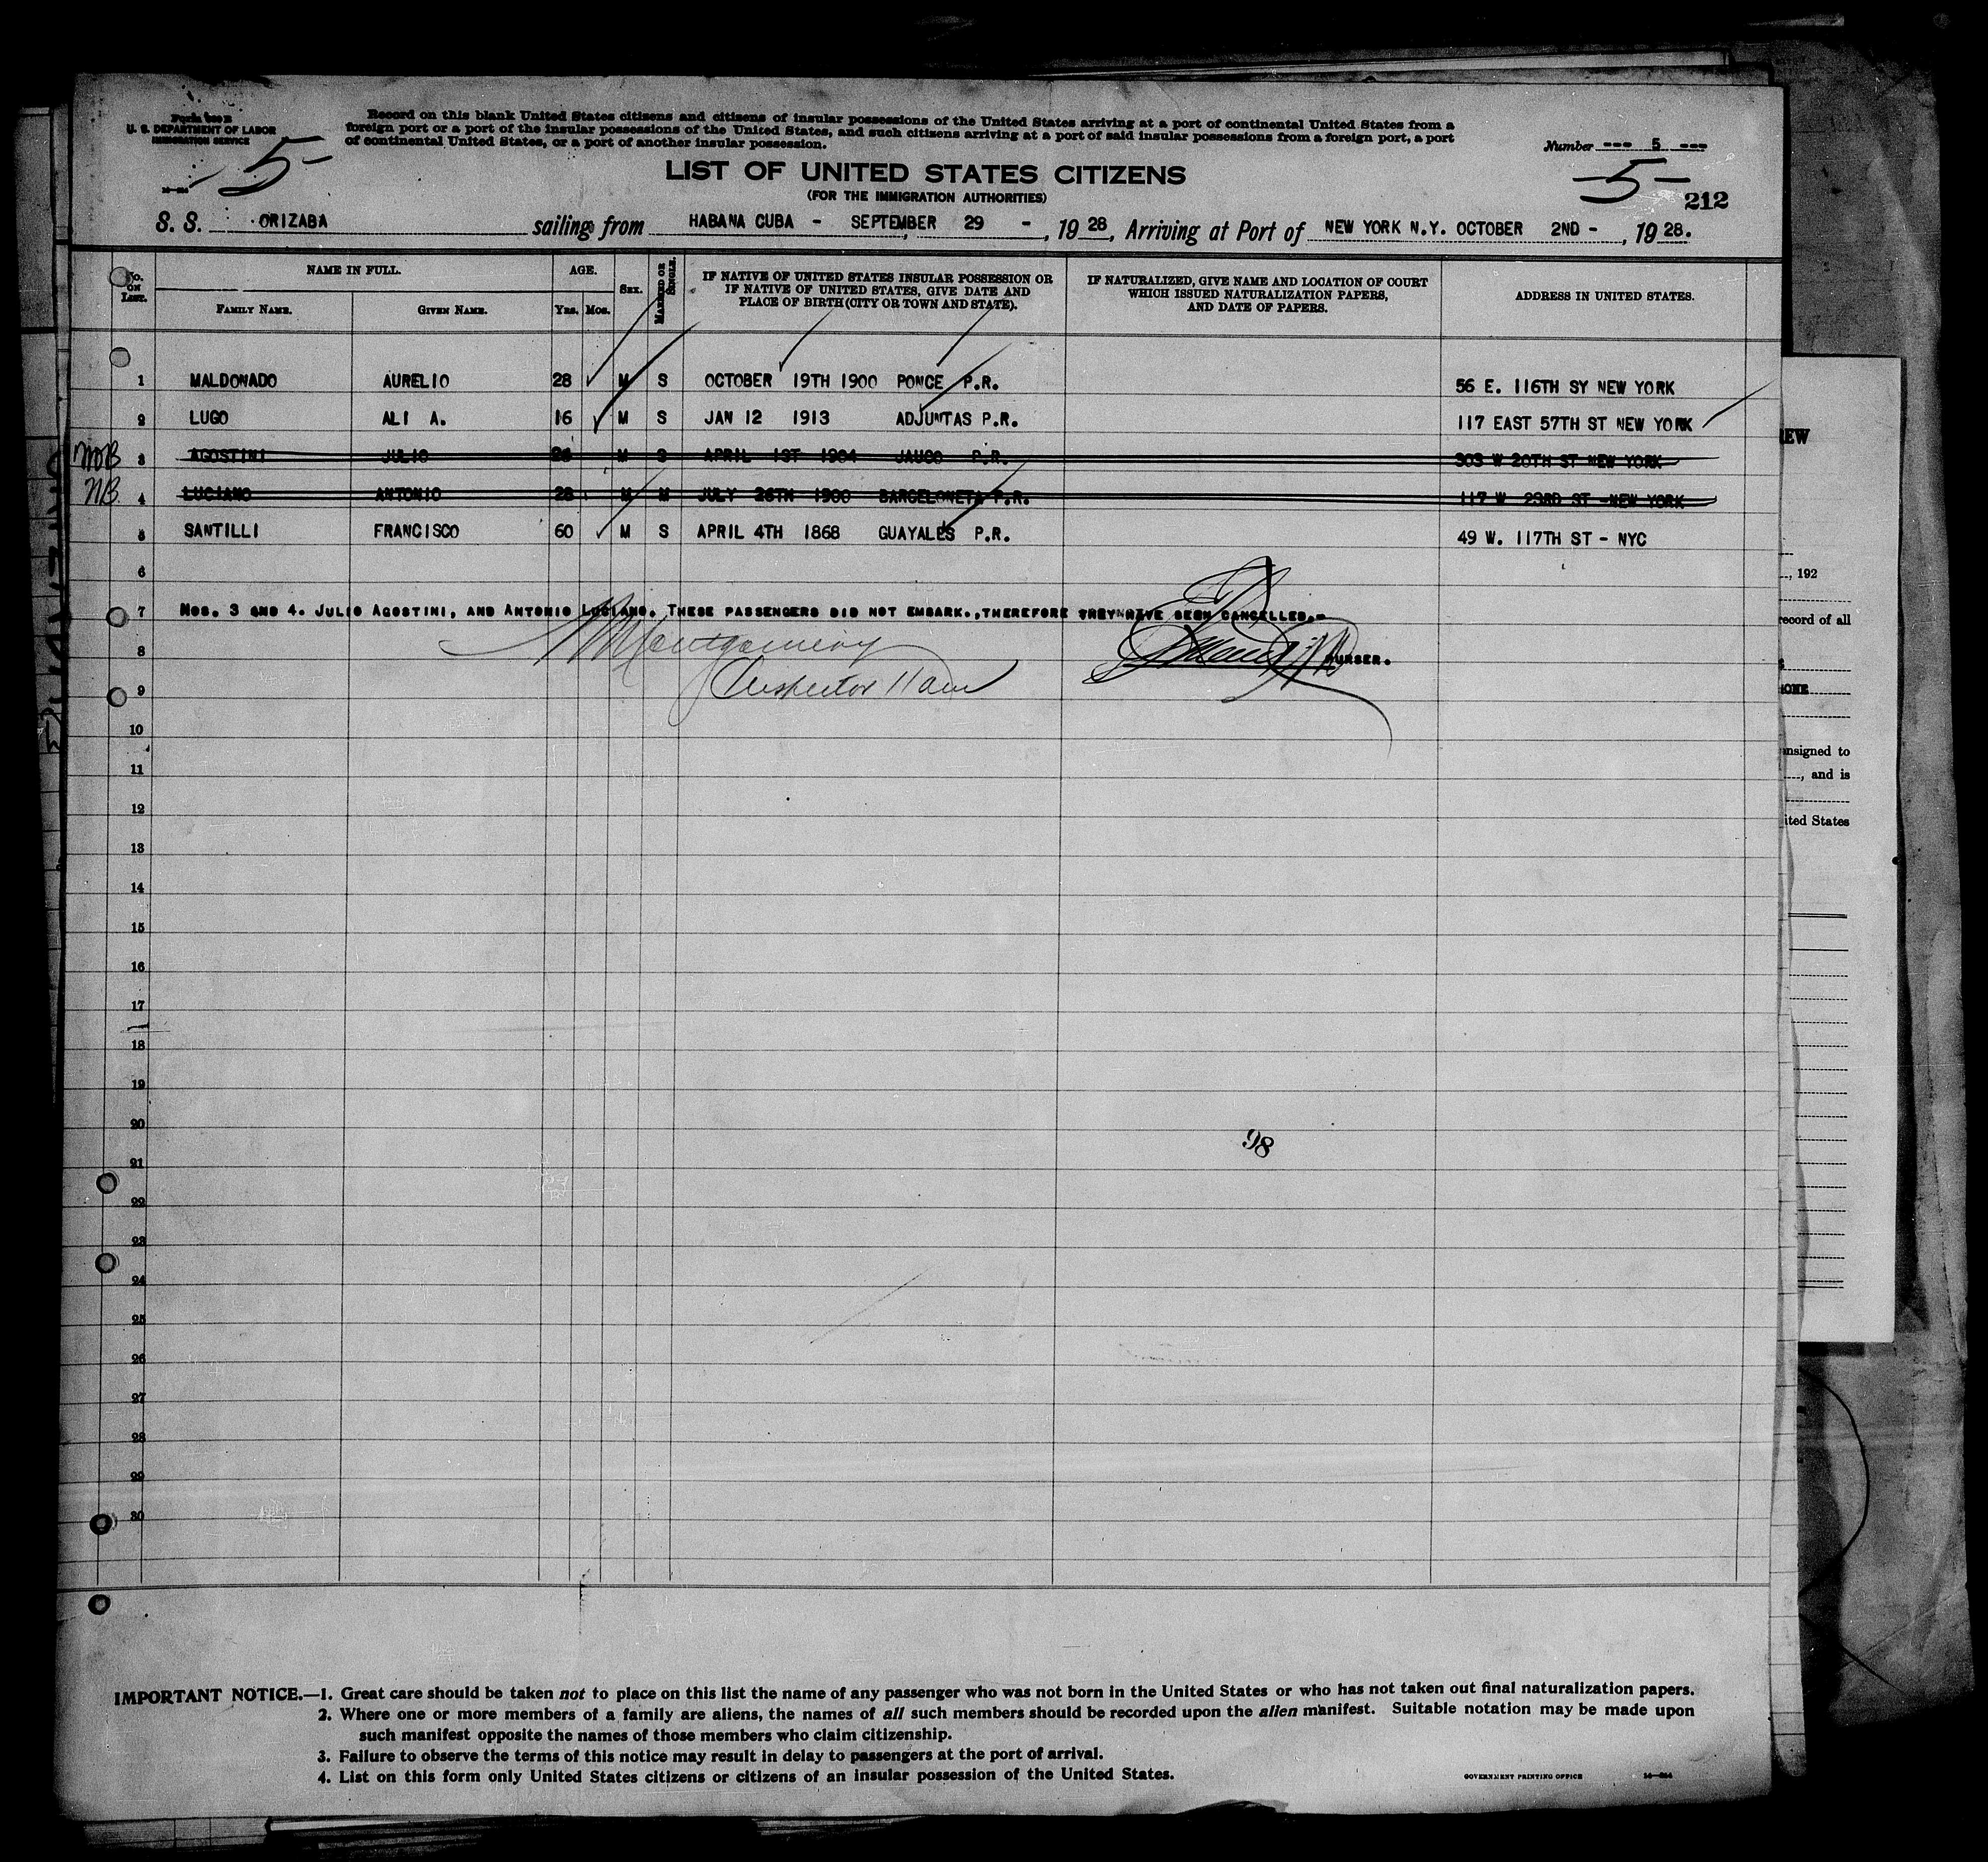 Form 500 B
U. S. DEPARTMENT OF LABOR
IMMIGRATION SERVICE
5-
Record on this blank United States citizens and citizens of insular possessions of the United States arriving at a port of continental United States from a
foreign port or a port of the insular possessions of the United States, and such citizens arriving at a port of said insular possessions from a foreign port, a port
of continental United States, or a port of another insular possession.
Number --- 5 ---
LIST OF UNITED STATES CITIZENS
(FOR THE IMMIGRATION AUTHORITIES)
-5-
212
S. S. ORIZABA sailing from HABANA CUBA - SEPTEMBER 29 -, 1928, Arriving at Port of NEW YORK N.Y. OCTOBER 2ND -, 1928.
No. ON LIST. NAME IN FULL. AGE. SEX. MARRIED OR SINGLE. IF NATIVE OF UNITED STATES INSULAR POSSESSION OR IF NATIVE OF UNITED STATES, GIVE DATE AND PLACE OF BIRTH (CITY OR TOWN AND STATE). IF NATURALIZED, GIVE NAME AND LOCATION OF COURT WHICH ISSUED NATURALIZATION PAPERS, AND DATE OF PAPERS. ADDRESS IN UNITED STATES.
FAMILY NAME. GIVEN NAME. YRS. MOS.
1 MALDONADO AURELIO 28 M S OCTOBER 19TH 1900 PONCE P.R. 56 E. 116TH SY NEW YORK
2 LUGO ALI A. 16 M S JAN 12 1913 ADJUNTAS P.R. 117 EAST 57TH ST NEW YORK
NOB 3 AGOSTINI JULIO 26 M S APRIL 1ST 1904 JAUCO P.R. 303 W 20TH ST NEW YORK
NB 4 LUCIANO ANTONIO 28 M M JULY 26TH 1900 BARCELONETA P.R. 117 W 23RD ST - NEW YORK
5 SANTILLI FRANCISCO 60 M S APRIL 4TH 1868 GUAYALES P.R. 49 W. 117TH ST - NYC
6
7 NOS. 3 AND 4. JULIO AGOSTINI, AND ANTONIO LUCIANO. THESE PASSENGERS DID NOT EMBARK., THEREFORE THEY HAVE BEEN CANCELLED.-
Montgomery
8 PURSER.
Inspector 11 am
9
10
11
12
13
14
15
16
17
18
19
20
98
21
22
23
24
25
26
27
28
29
30
IMPORTANT NOTICE.—1. Great care should be taken not to place on this list the name of any passenger who was not born in the United States or who has not taken out final naturalization papers.
2. Where one or more members of a family are aliens, the names of all such members should be recorded upon the alien manifest. Suitable notation may be made upon
such manifest opposite the names of those members who claim citizenship.
3. Failure to observe the terms of this notice may result in delay to passengers at the port of arrival.
4. List on this form only United States citizens or citizens of an insular possession of the United States.
GOVERNMENT PRINTING OFFICE
EW
, 192
record of all
nsigned to
, and is
ited States